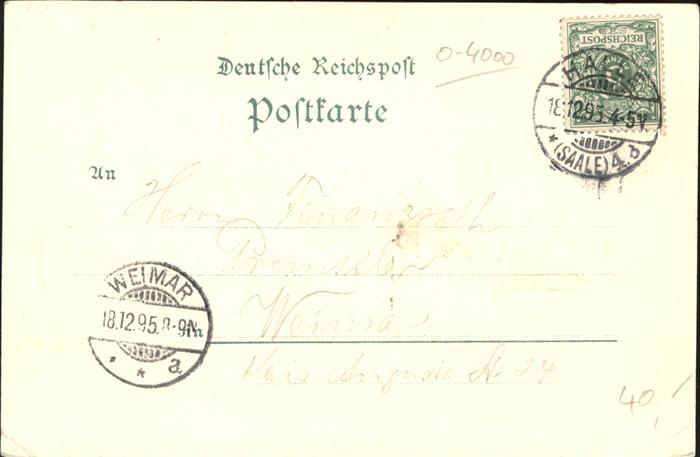 0-4000
REICHSPOST
Deutsche Reichspost
Postkarte
HALLE
18.12.95.4-5N
* (SAALE) 4. b
An
Herrn Finanzrath
Weimar
Karl Augusta Str 24
WEIMAR
18.12.95.8-9N
* * a
in
40,-